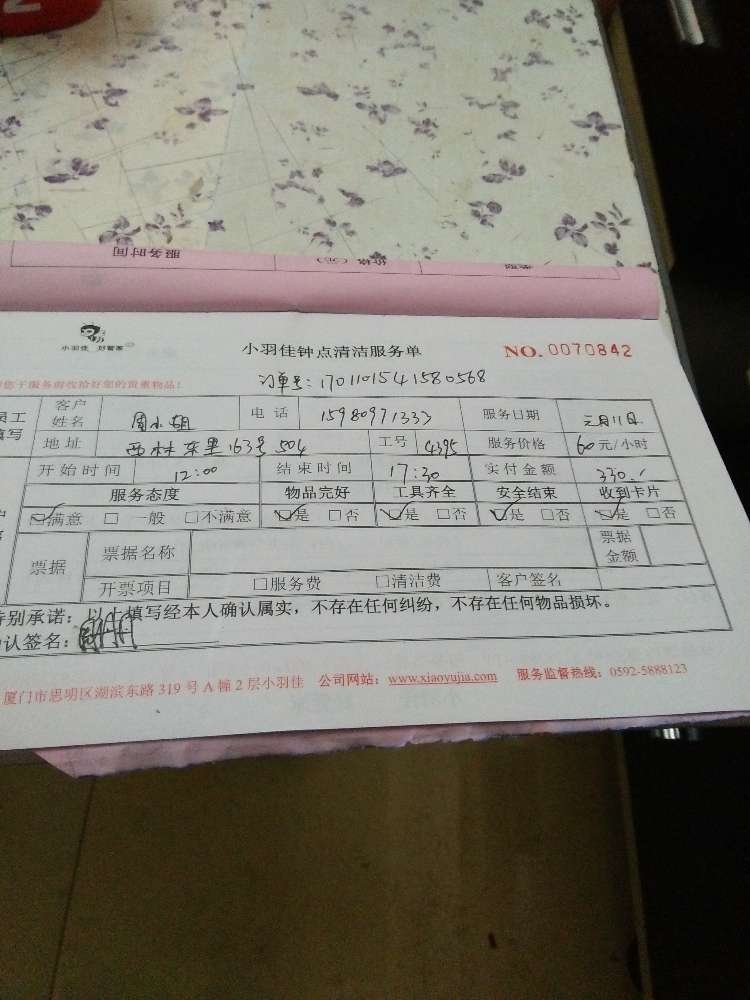 服务时间
小羽佳 好管家
小羽佳钟点清洁服务单 NO. 0070842
您于服务前收拾好您的贵重物品! 订单号: 1701101541580568
员工 客户姓名 周小姐 电 话 15980971333 服务日期 元月11日
填写 地址 西林东里163号504 工号 4395 服务价格 60元/小时
开始时间 12:00 结束时间 17:30 实付金额 330.
服务态度 物品完好 工具齐全 安全结束 收到卡片
☑满意 □ 一般 □不满意 ☑是 □否 ☑是 □否 ☑是 □否 ☑是 □否
票据 票据名称 票据金额
开票项目 □服务费 □清洁费 客户签名
特别承诺: 以上填写经本人确认属实,不存在任何纠纷,不存在任何物品损坏。
确认签名:
厦门市思明区湖滨东路319号A幢2层小羽佳 公司网站: www.xiaoyujia.com 服务监督热线: 0592-5888123